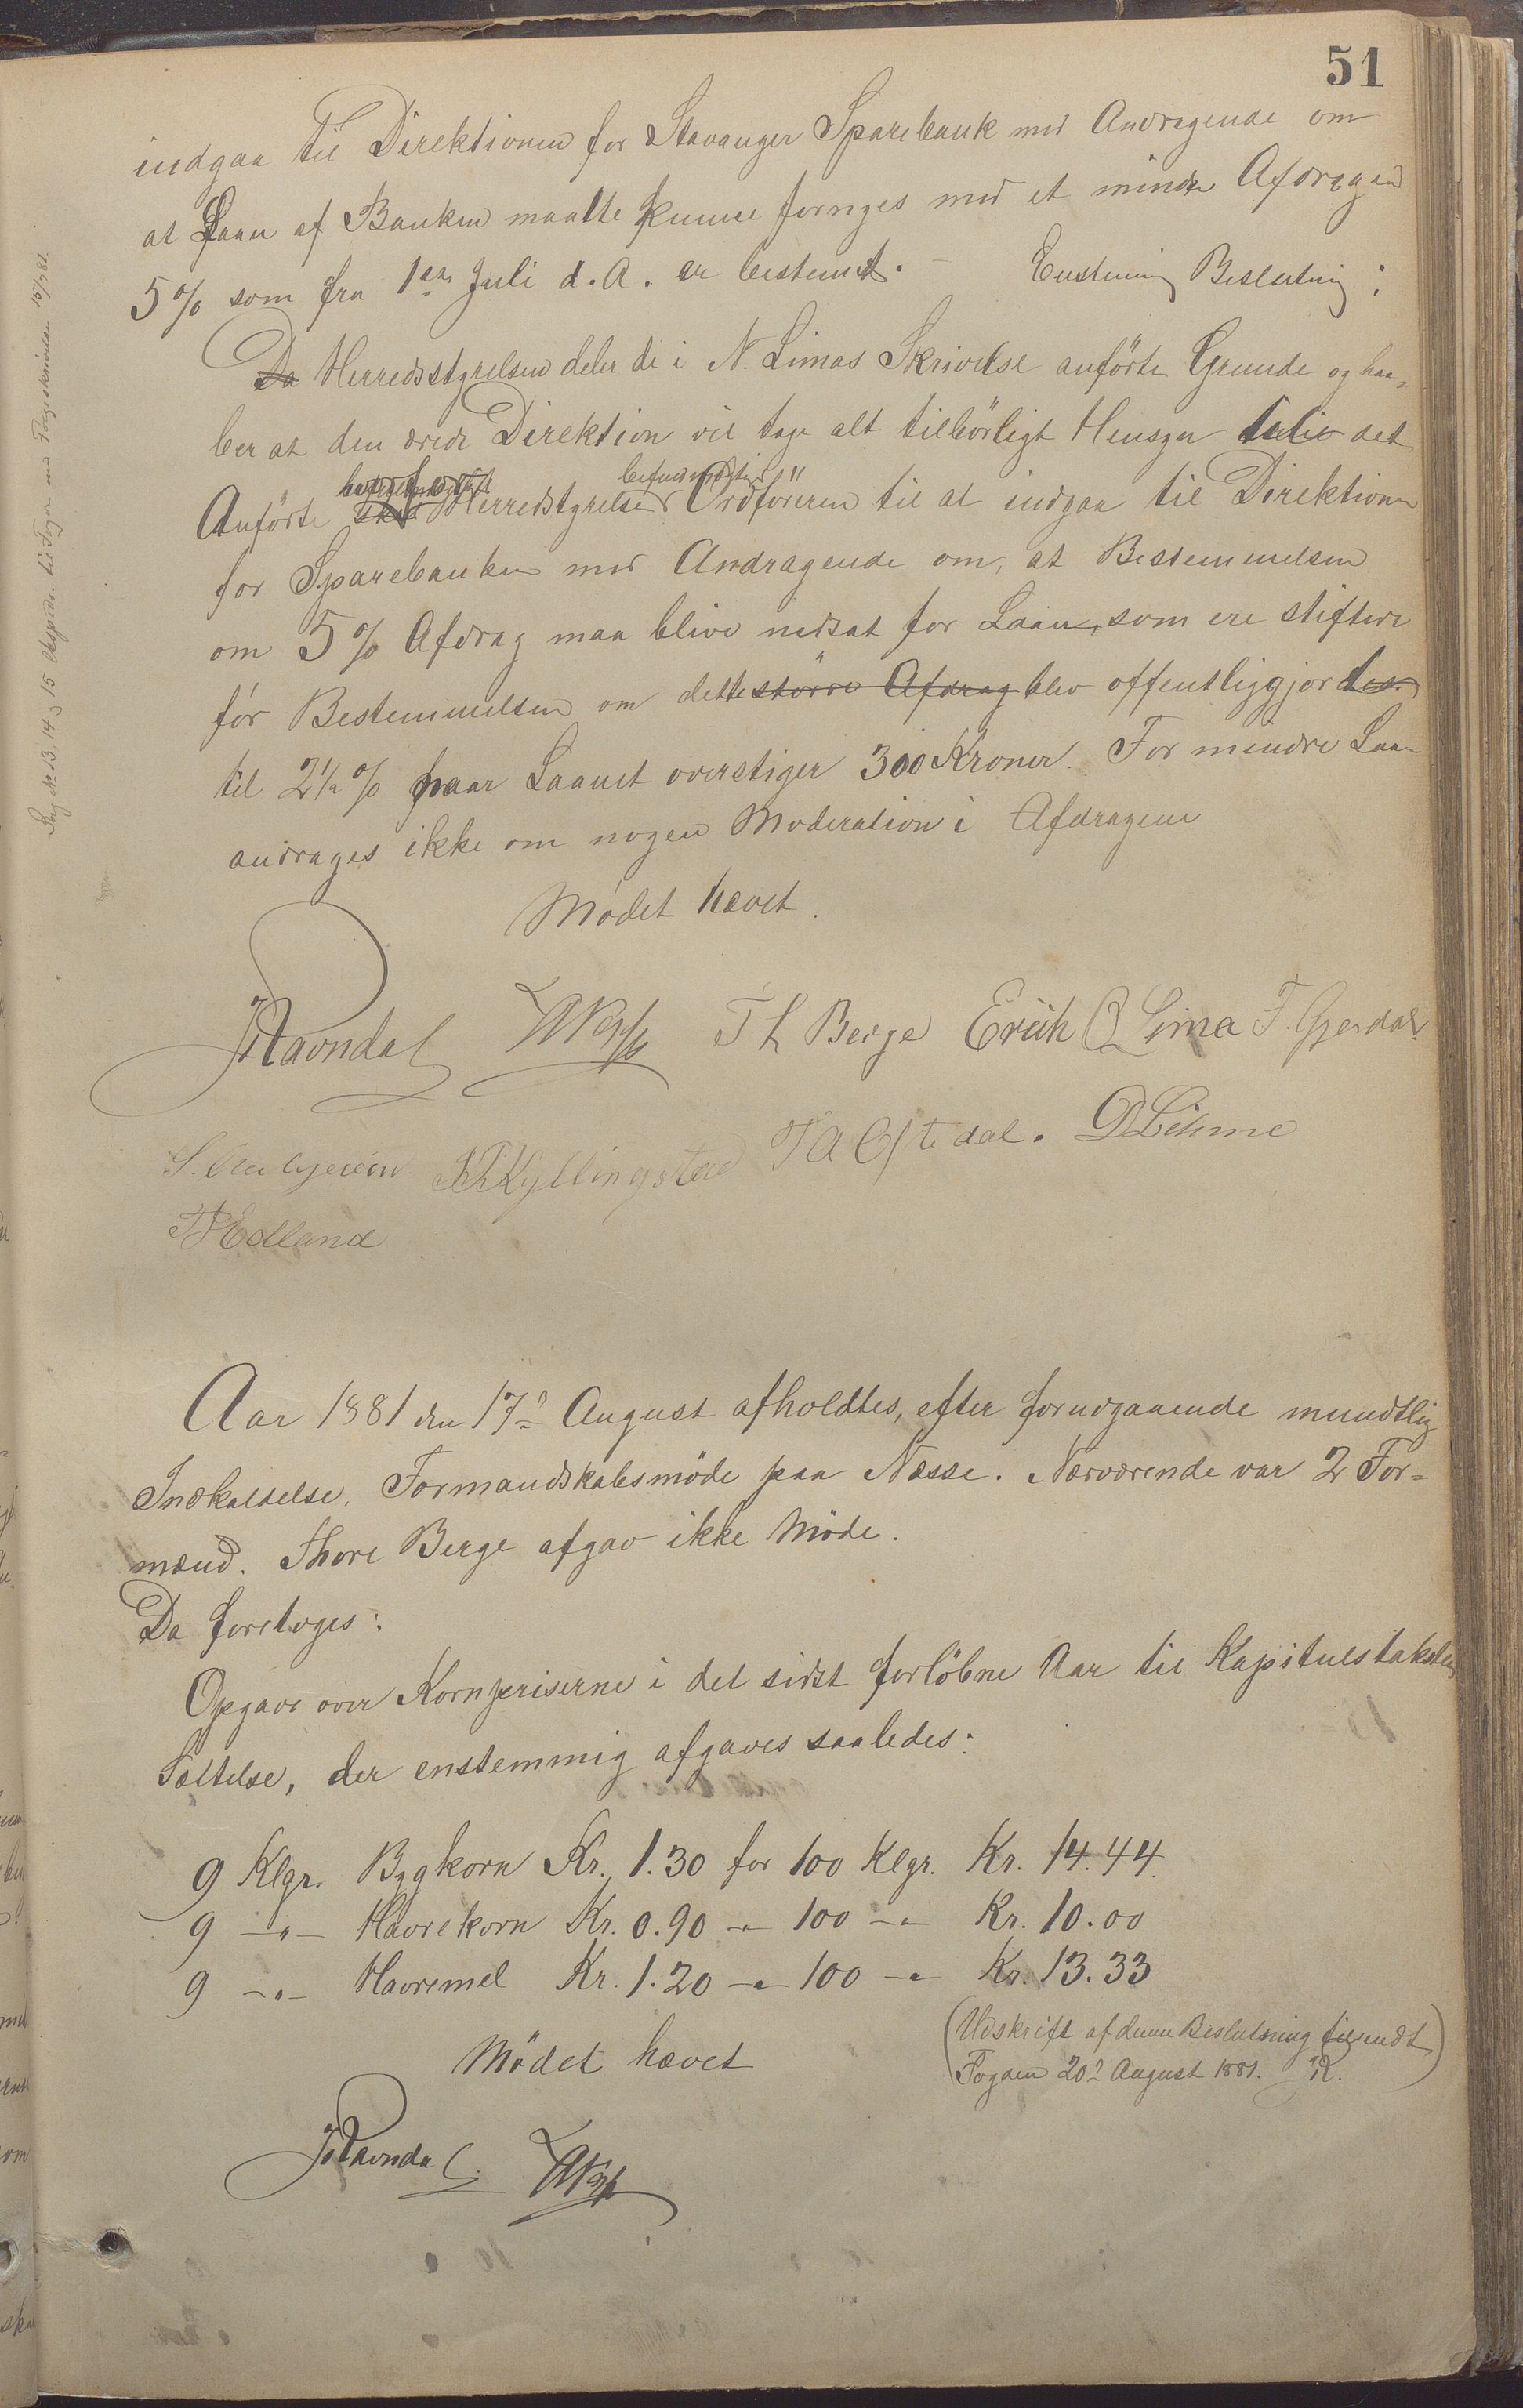 51
indgaa til Direktionen for Stavanger Sparebank med Andragende om
at Laan af Banken maatte kunne fornyes med et mindre Afdrag end
5% som fra 1ste Juli d. A. er bestemt. – Enstemmig Beslutning:
Da Herredsstyrelsen deler de i N. Limas Skrivelse anförte Grunde og haa-
ber at den ærede Direktion vil tage alt tilbörligt Hensyn til det
befuldmægtiges
Anförte Herredstyrelsen Ordföreren til at indgaa til Direktionen
for Sparebanken med Andragende om, at Bestemmelsen
om 5% Afdrag maa blive nedsat for Laan, som ere stiftede
för Bestemmelsen om dette större Afdrag blev offentliggjordes
til 2½% naar Laanet overstiger 300 Kroner. For mindre Laan
andrages ikke om nogen Moderation i Afdragene
Mödet hævet.
JRavndal Th Berge Erik O Lima T. Gjesdal
S. KKyllingstad T A Oftedal. O Lihme
T Edland
Aar 1881 den 17de August afholdtes, efter forudgaaende mundtlig
Indkaldelse, Formandskabsmöde paa Næsse. Nærværende var 2 For-
mænd. Thore Berge afgav ikke Möde.
Da foretoges:
Opgave over Kornpriserne i det sidst forlöbne Aar til Kapitelstakstens
Sættelse, der enstemmig afgaves saaledes:
9 Klgr. Bygkorn Kr. 1.30 for 100 Klgr. Kr. 14.44.
9 –"– Havrekorn Kr. 0.90 –"– 100 –"– Kr. 10.00
9 –"– Havremel Kr. 1.20 –"– 100 –"– Kr. 13.33
Mödet hævet
(Udskrift af denne Beslutning tilsendt
Fogden 20de August 1881. R.)
JRavndal
Sag No 13, 14 og 15 Exped. til Fogden med Fölgeskrivelse 15/7 81.